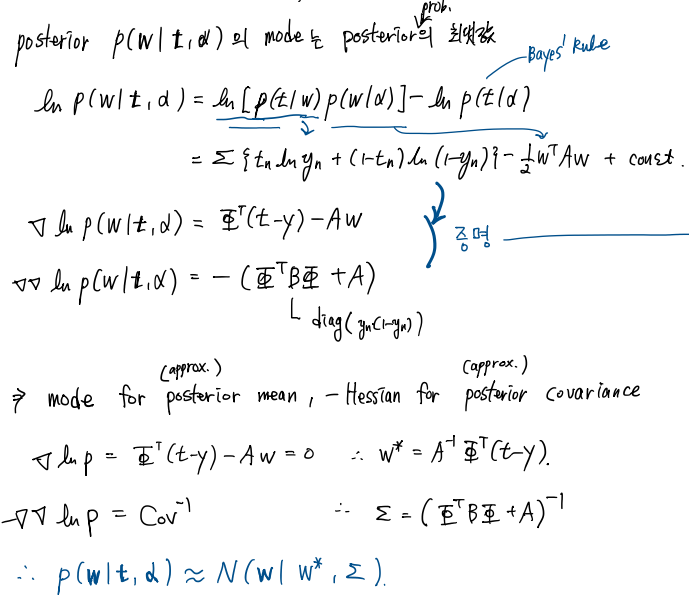 prob.
posterior p(w|t,α) 의 mode는 posterior의 최댓값
Bayes' Rule
ln p(w|t,α) = ln[p(t|w)p(w|α)] - ln p(t|α)
= Σ{tₙ ln yₙ + (1-tₙ) ln (1-yₙ)} - ½ wᵀAw + const.
∇ ln p(w|t,α) = Φᵀ(t-y) - Aw
증명
∇∇ ln p(w|t,α) = - (ΦᵀBΦ + A)
diag(yₙ(1-yₙ))
(approx.) (approx.)
⇒ mode for posterior mean, - Hessian for posterior covariance
∇ ln p = Φᵀ(t-y) - Aw = 0 ∴ w* = A⁻¹Φᵀ(t-y).
-∇∇ ln p = Cov⁻¹ ∴ Σ = (ΦᵀBΦ + A)⁻¹
∴ p(w|t,α) ≈ N(w| w*, Σ).